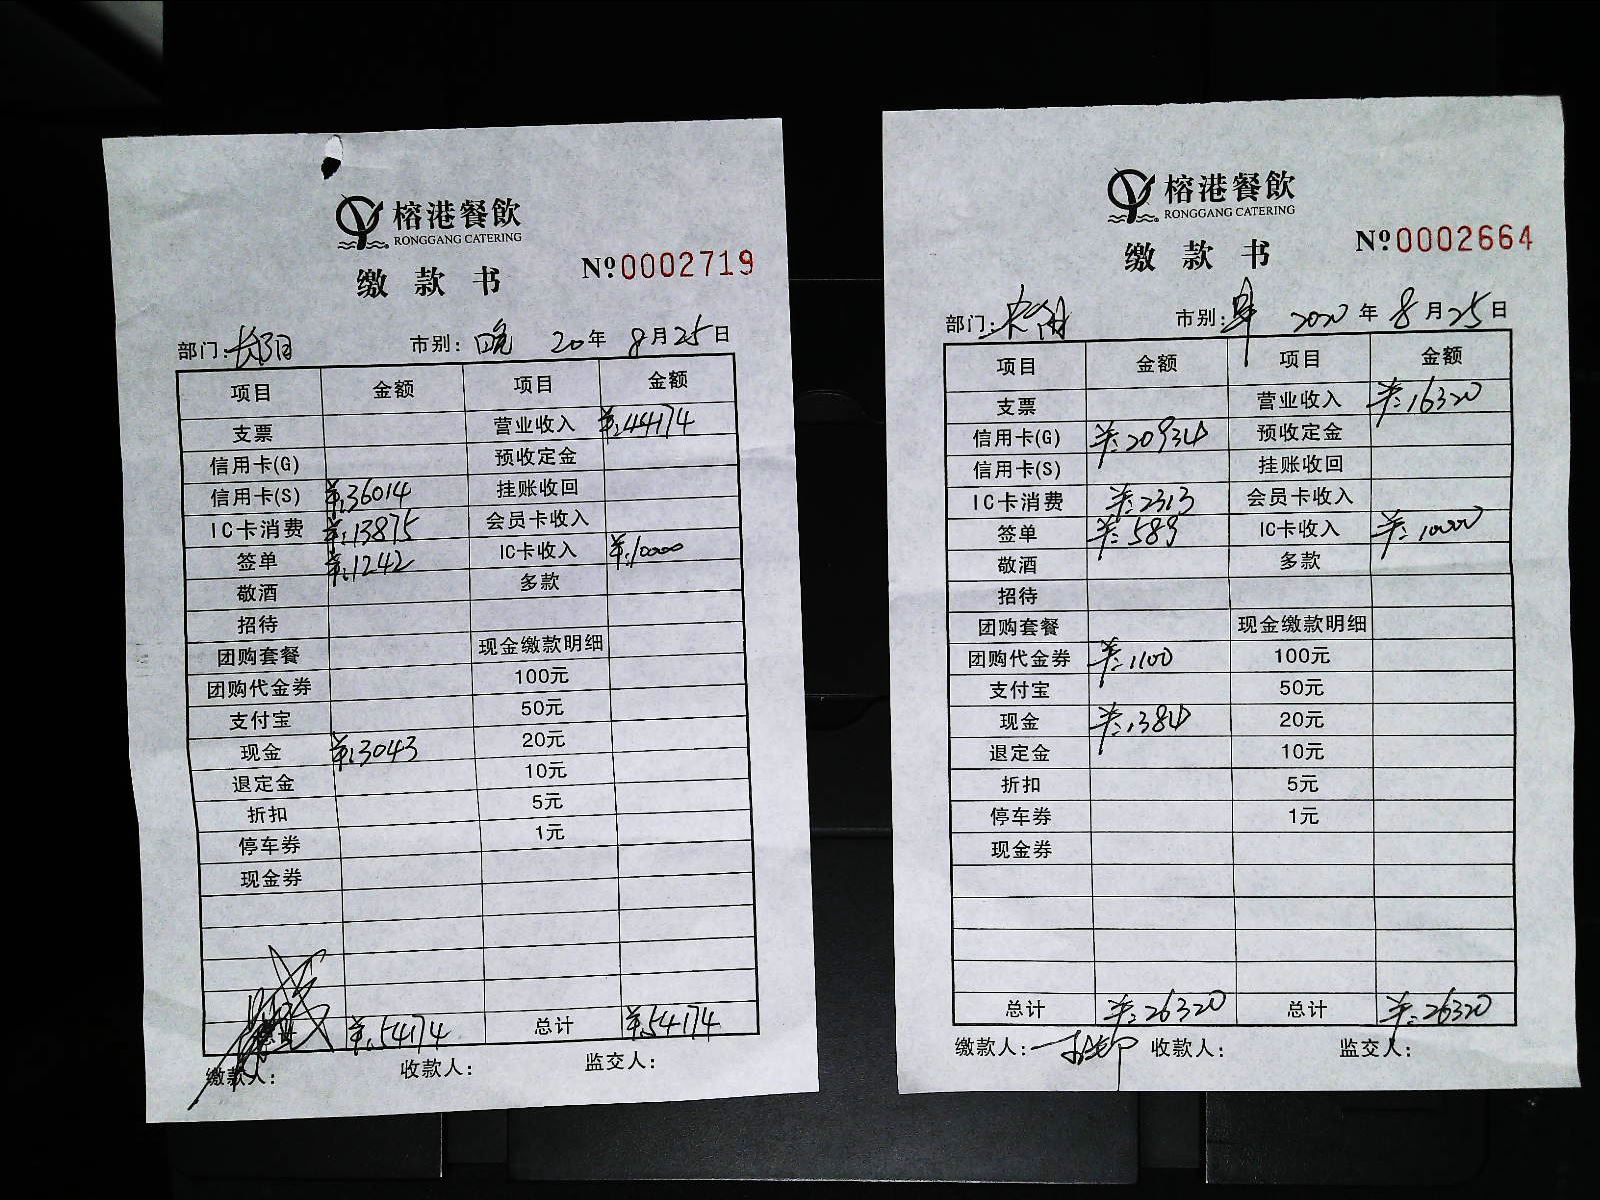 榕港餐飲
RONGGANG CATERING
缴款书
Nº0002719
部门: 长阳 市别: 晚 20年 8月25日
项目 金额 项目 金额
支票 营业收入 ¥:44174
信用卡(G) 预收定金
信用卡(S) ¥:36014 挂账收回
IC卡消费 ¥:13875 会员卡收入
签单 ¥:1242 IC卡收入 ¥:10000
敬酒 多款
招待
团购套餐 现金缴款明细
团购代金券 100元
支付宝 50元
现金 ¥:3043 20元
退定金 10元
折扣 5元
停车券 1元
现金券
¥:54174 总计 ¥:54174
缴款人: 收款人: 监交人:
榕港餐飲
RONGGANG CATERING
缴款书
Nº0002664
部门: 市别: 2020年 8月25日
项目 金额 项目 金额
支票 营业收入 ¥:16320
信用卡(G) ¥:20934 预收定金
信用卡(S) 挂账收回
IC卡消费 ¥:2313 会员卡收入
签单 ¥:589 IC卡收入 ¥:10000
敬酒 多款
招待
团购套餐 现金缴款明细
团购代金券 ¥:1100 100元
支付宝 50元
现金 ¥:1384 20元
退定金 10元
折扣 5元
停车券 1元
现金券
总计 ¥:26320 总计 ¥:26320
缴款人: 收款人: 监交人: